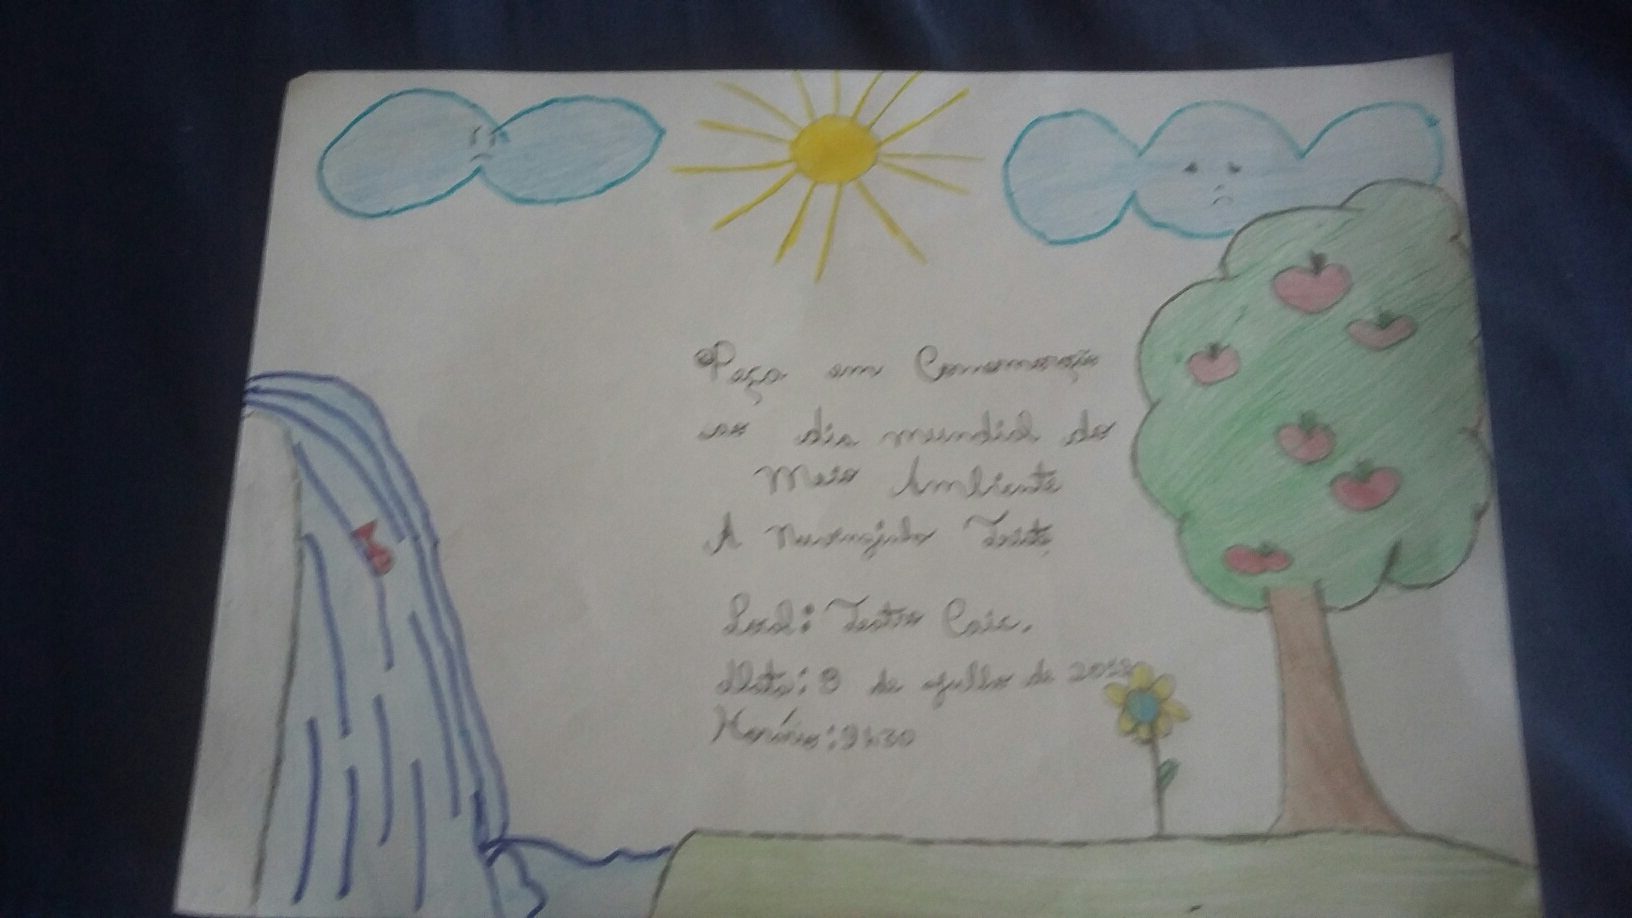 Peça em Comemoração
ao dia mundial do
Meio Ambiente
A Triste
Local: Teatro Cais.
Data: 8 de de
Horário: 9h30